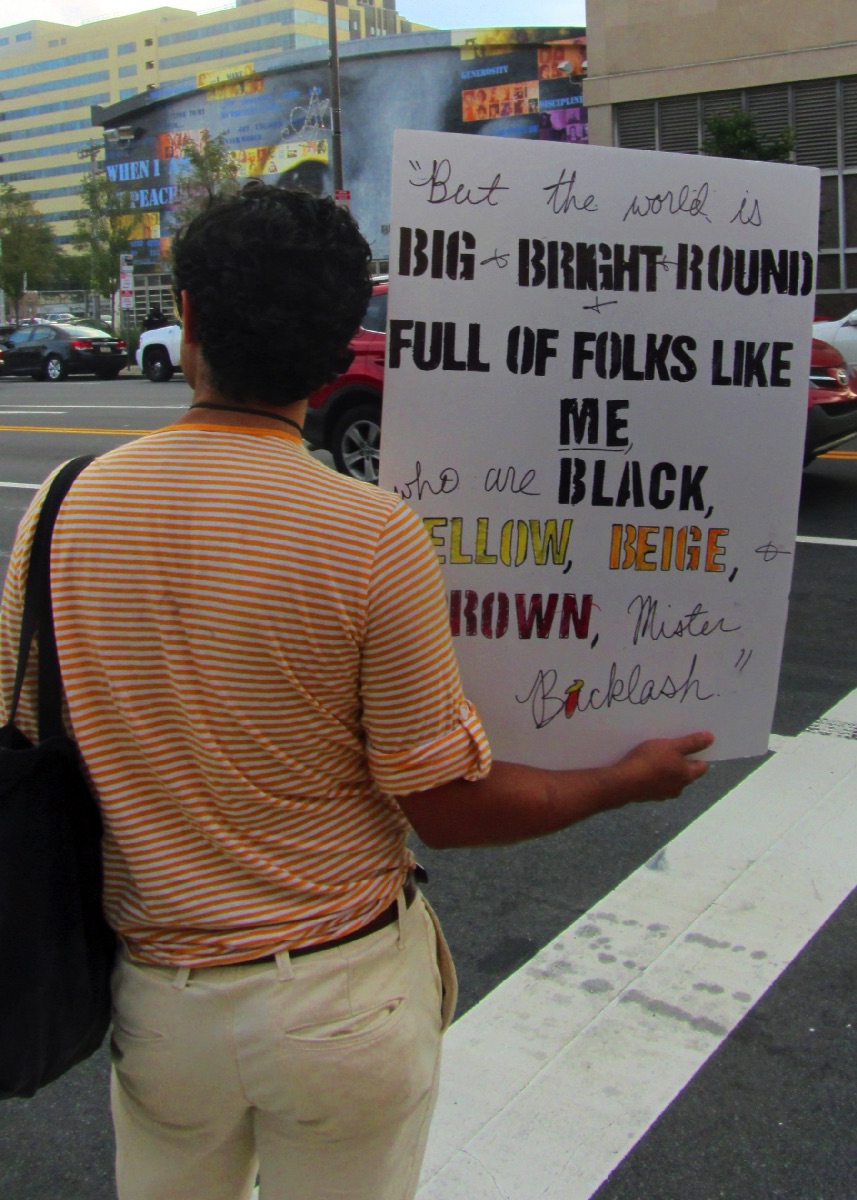 WHEN I
PEACE
GENEROSITY
DISCIPLINE
"But the world is
BIG + BRIGHT + ROUND
+
FULL OF FOLKS LIKE
ME,
who are BLACK,
ELLOW, BEIGE, +
ROWN, Mister
Backlash."